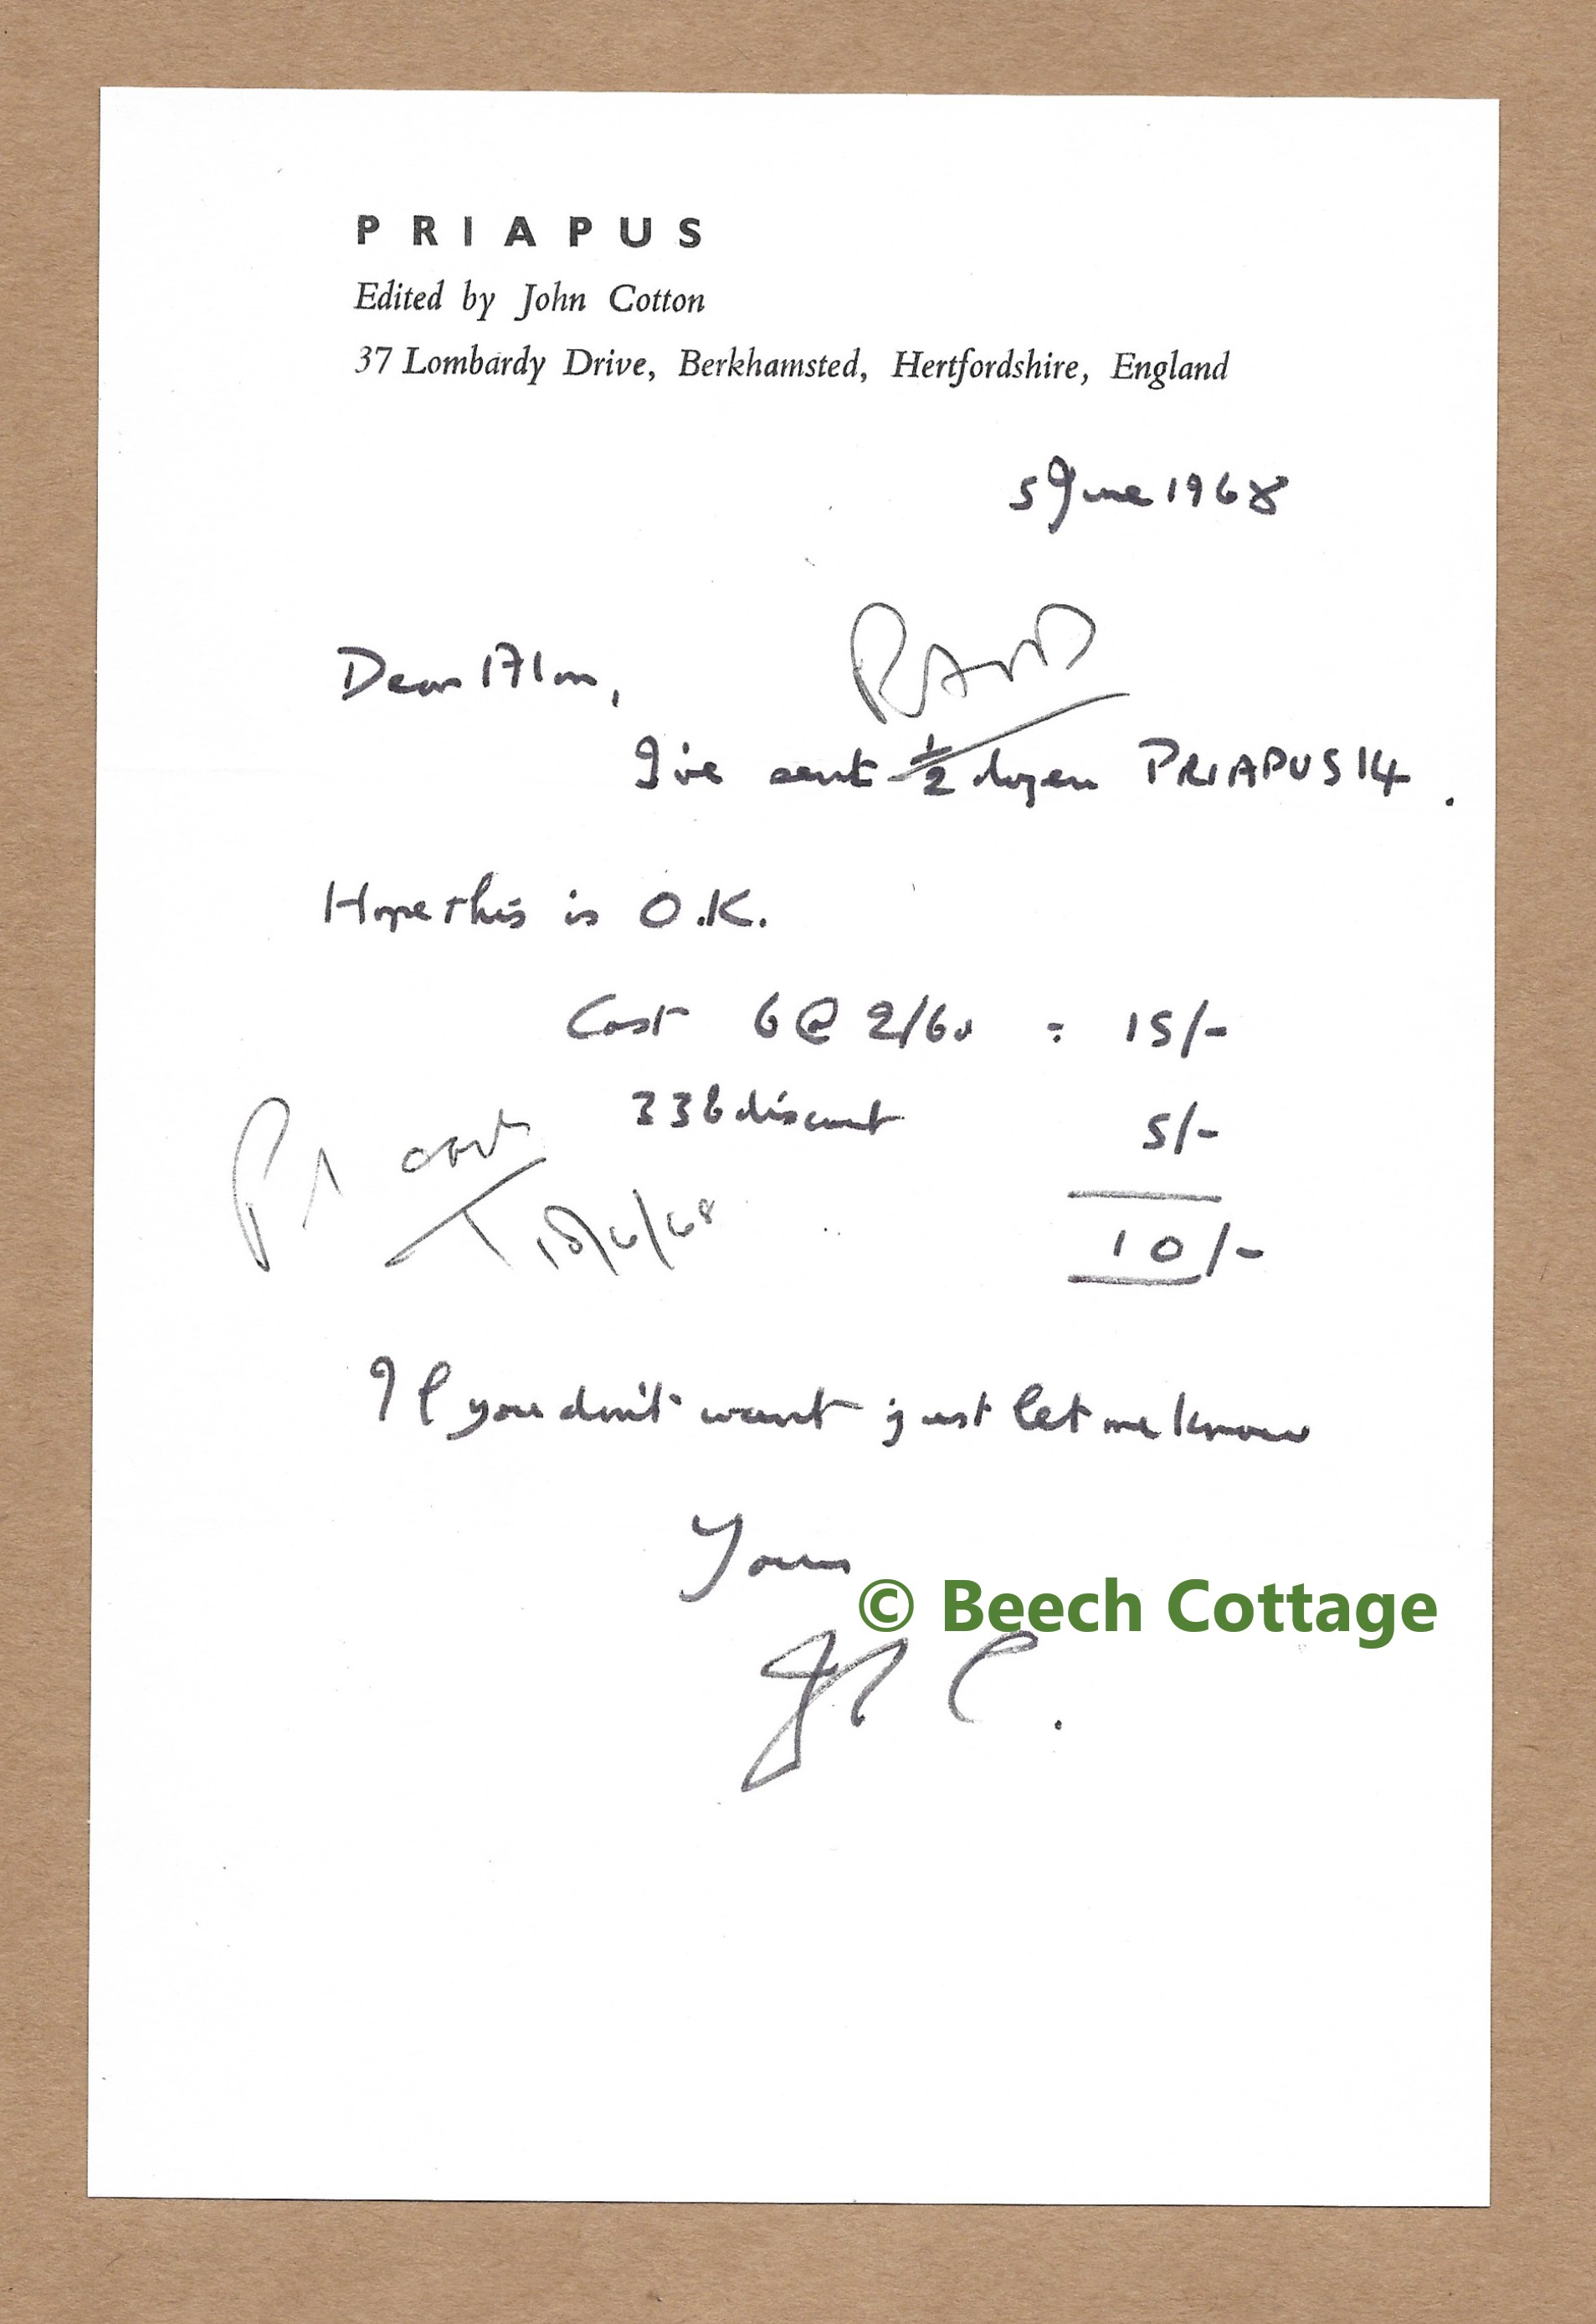 PRIAPUS
Edited by John Cotton
37 Lombardy Drive, Berkhamsted, Hertfordshire, England
5 June 1968
Dear Alan,
I've sent ½ dozen PRIAPUS 14.
Hope this is O.K.
Cost 6 @ 2/6d = 15/-
discount 5/-
18/6/68
10/-
If you don't want just let me know
Yours
© Beech Cottage